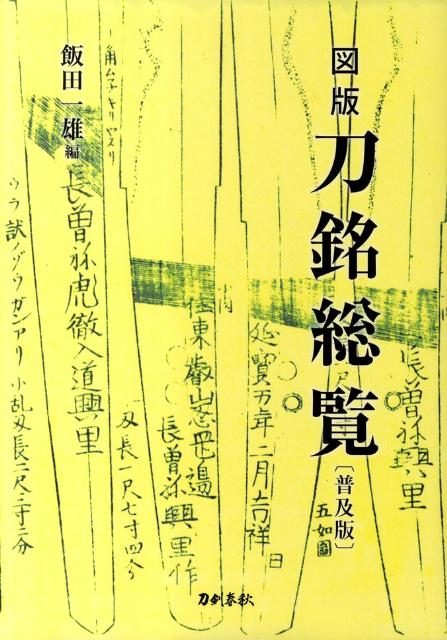 図版
刀銘総覧
〔普及版〕
飯田一雄編
長曽祢興里
五如圖
延寶五年二月吉祥日
住東叡山忍岡邊
長曽祢興里作
刄長一尺七寸四分
角ムネキリヤスリ
長曽祢虎徹入道興里
ウラ試ノゾウガンアリ 小乱刄長二尺三寸三分
刀剣春秋